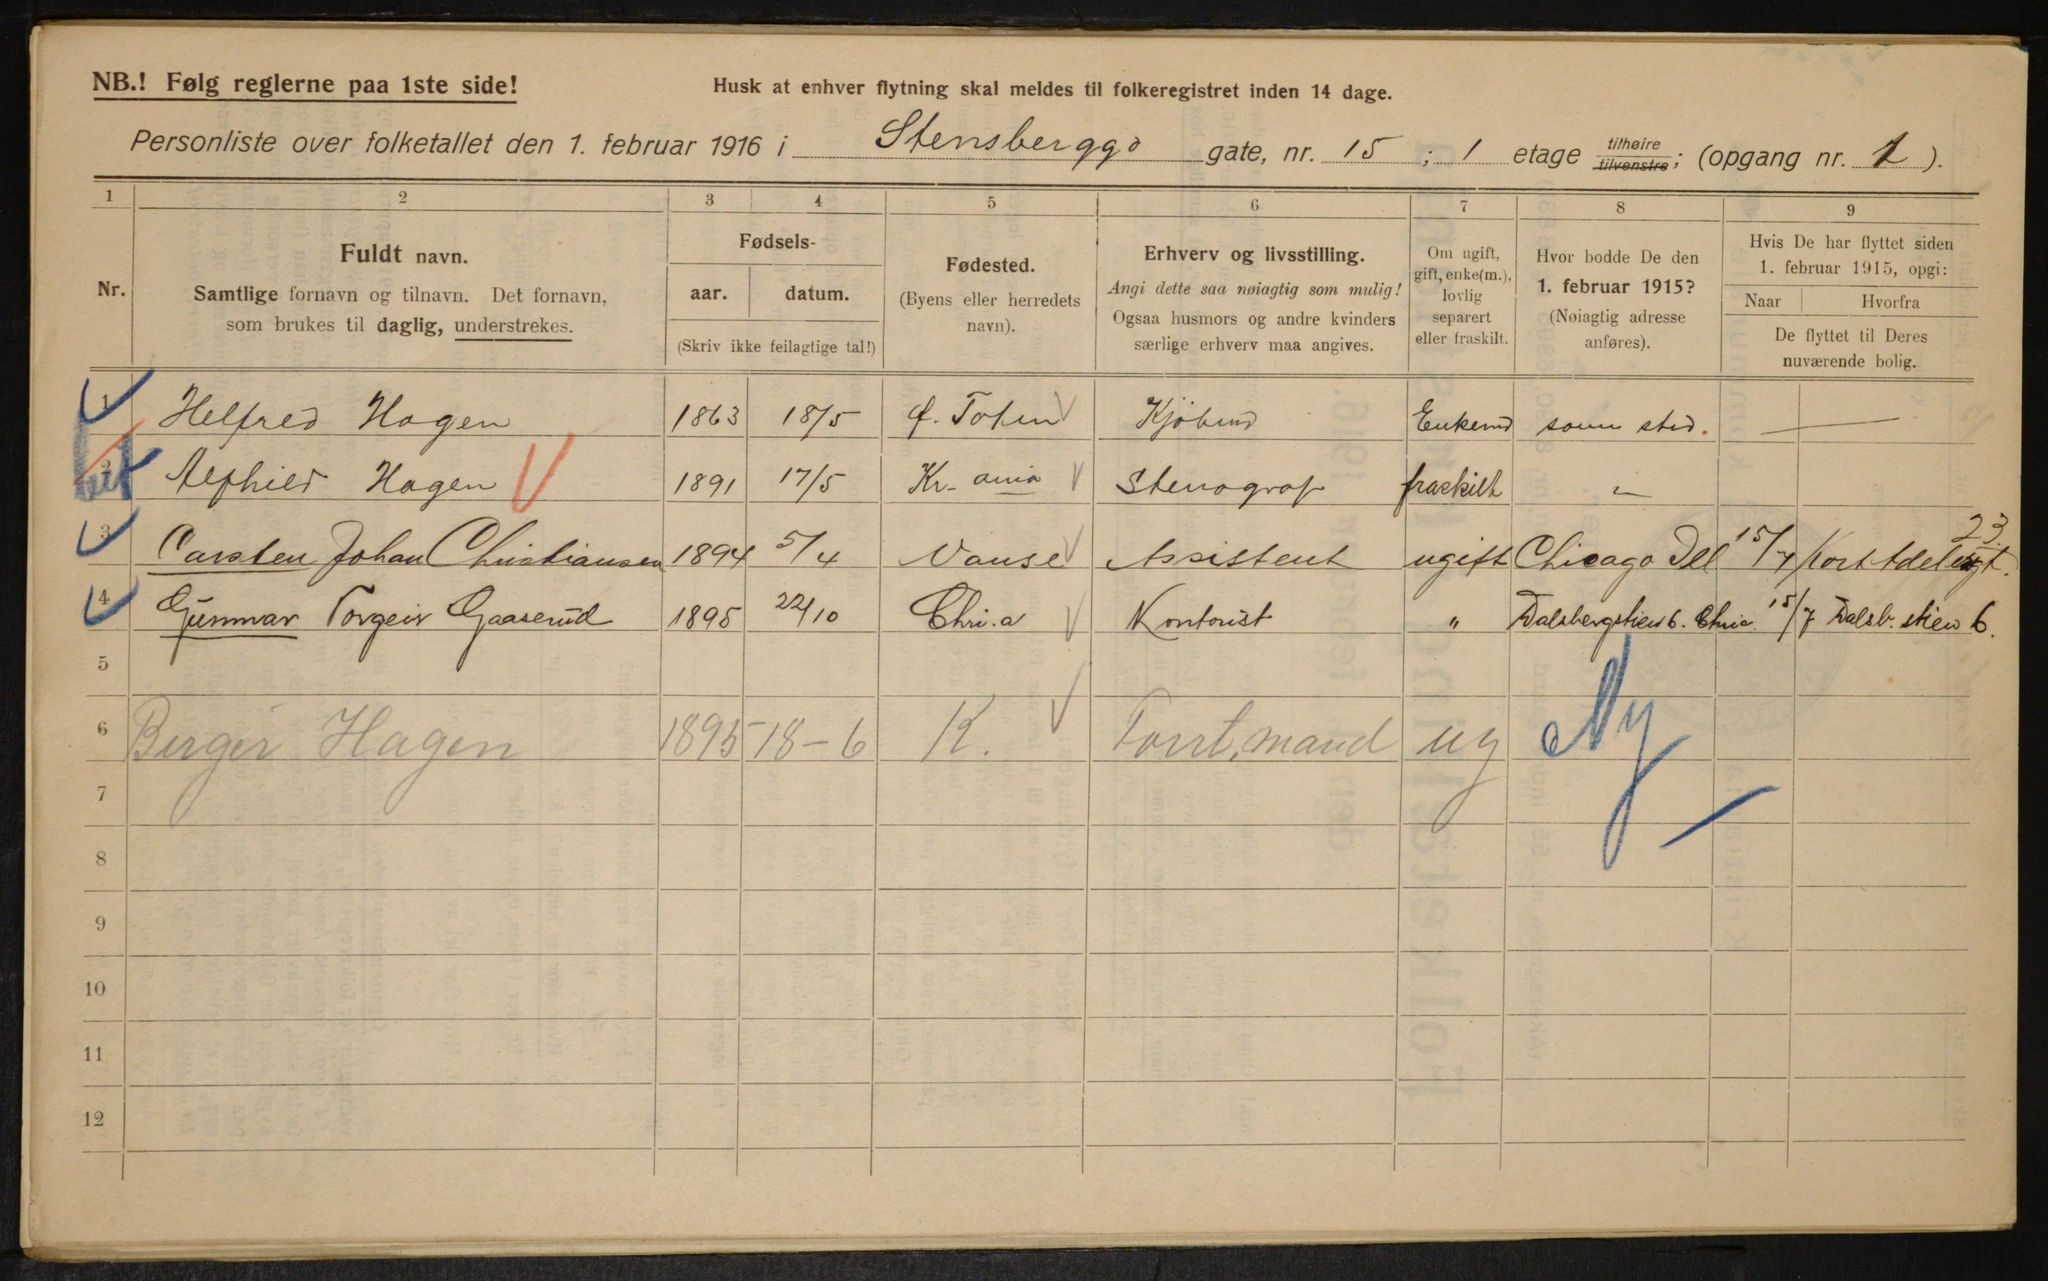 NB.! Følg reglerne paa 1ste side!
Husk at enhver flytning skal meldes til folkeregistret inden 14 dage.
Personliste over folketallet den 1. februar 1916 i Stensberggd gate, nr. 15 ; 1 etage tilhøire tilvenstre; (opgang nr. 1 ).
1 2 3 4 5 6 7 8 9
Nr.
Fuldt navn.
Samtlige fornavn og tilnavn. Det fornavn,
som brukes til daglig, understrekes.
Fødsels-
aar. datum.
(Skriv ikke feilagtige tal!)
Fødested.
(Byens eller herredets
navn).
Erhverv og livsstilling.
Angi dette saa nøiagtig som mulig!
Ogsaa husmors og andre kvinders
særlige erhverv maa angives.
Om ugift,
gift, enke(m.),
lovlig
separert
eller fraskilt.
Hvor bodde De den
1. februar 1915?
(Nøiagtig adresse
anføres).
Hvis De har flyttet siden
1. februar 1915, opgi:
Naar Hvorfra
De flyttet til Deres
nuværende bolig.
1 Helfred Hagen 1863 18/5 Ø. Toten Kjøbmd Enkemd samme sted. —
2 Alfhild Hagen 1891 17/5 Kr-ania Stenograf fraskilt "
3 Carsten Johan Christiansen 1894 5/4 Vanse Assistent ugift Chicago Ill 15/7 23.
4 Gunnar Torgeir Gaaserud 1895 22/10 Chri.a Kontorist " Dalsbergstien 6. Chria. 15/7 Dalsb. stien 6.
5
6 Birger Hagen 1895 18-6 K. mand ug Ny
7
8
9
10
11
12